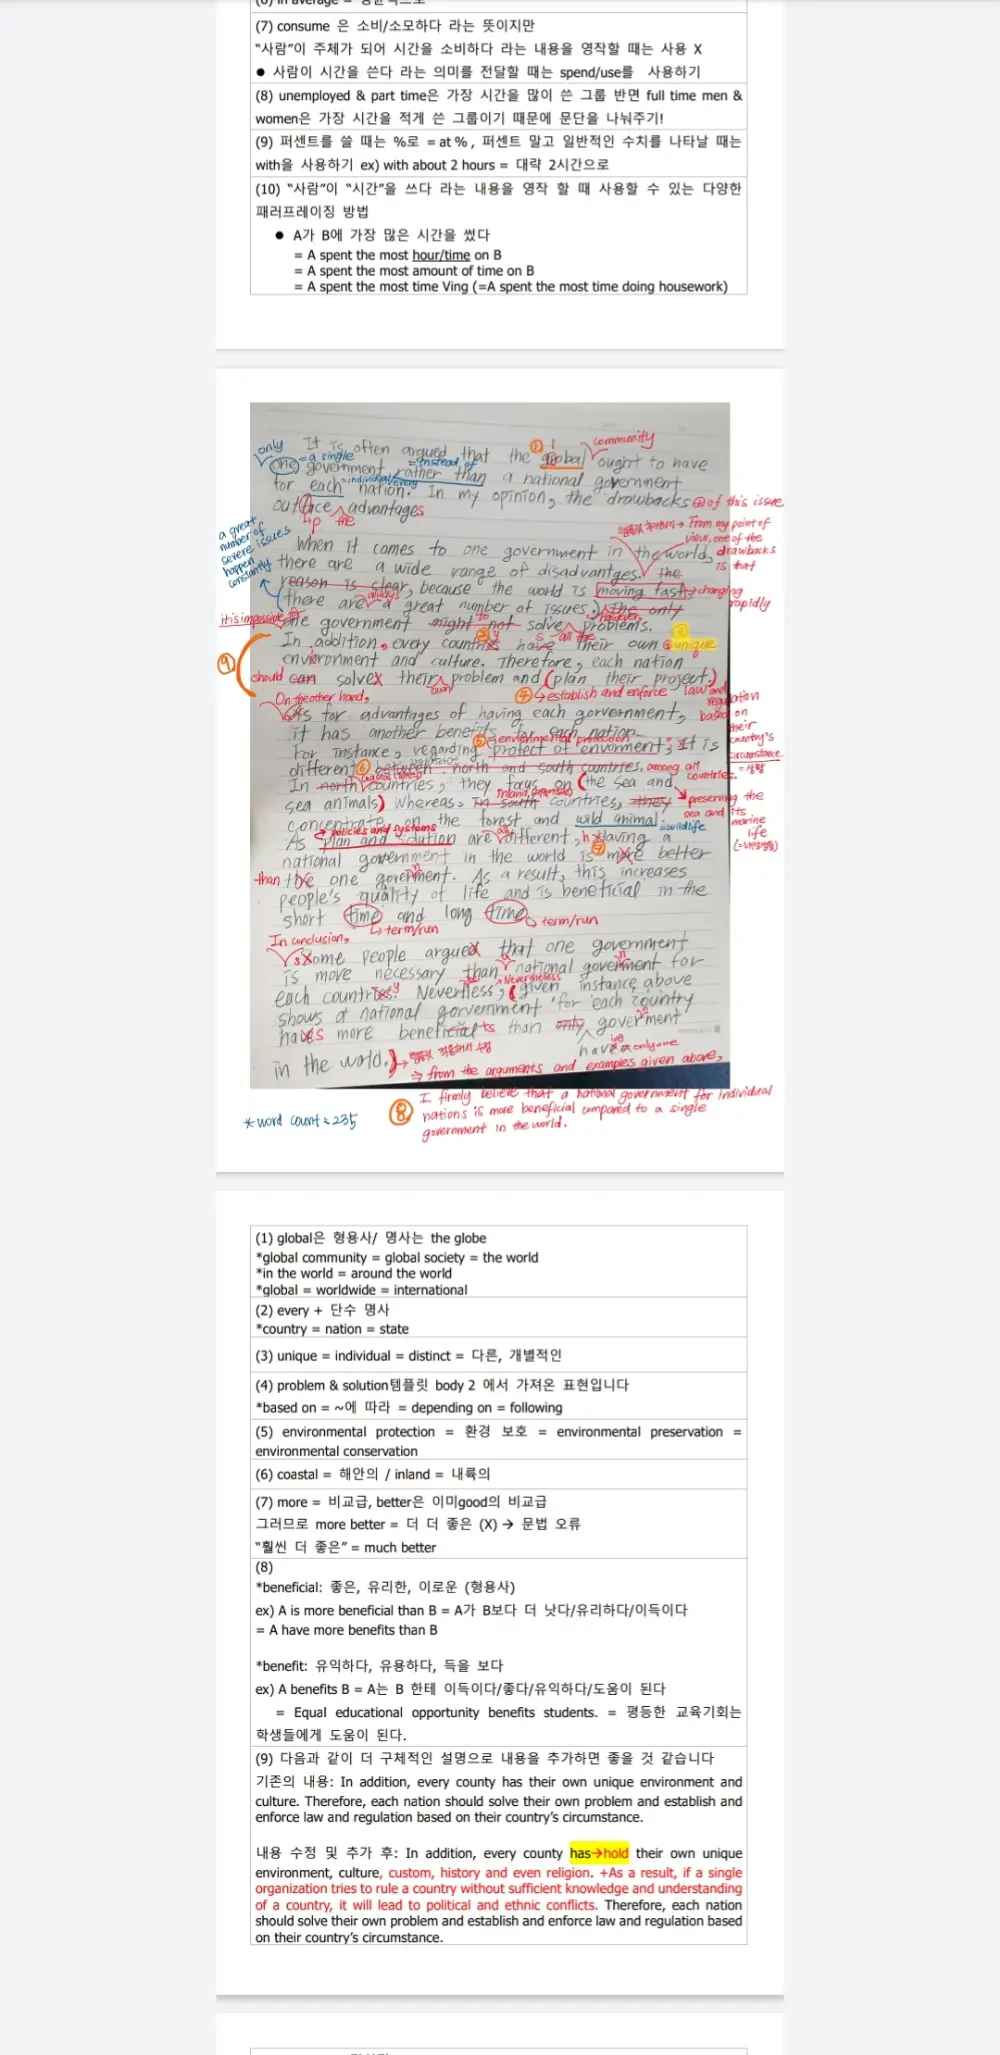 (7) consume 은 소비/소모하다 라는 뜻이지만
“사람”이 주체가 되어 시간을 소비하다 라는 내용을 영작할 때는 사용 X
● 사람이 시간을 쓴다 라는 의미를 전달할 때는 spend/use를 사용하기
(8) unemployed & part time은 가장 시간을 많이 쓴 그룹 반면 full time men &
women은 가장 시간을 적게 쓴 그룹이기 때문에 문단을 나눠주기!
(9) 퍼센트를 쓸 때는 %로 = at %, 퍼센트 말고 일반적인 수치를 나타날 때는
with을 사용하기 ex) with about 2 hours = 대략 2시간으로
(10) “사람”이 “시간”을 쓰다 라는 내용을 영작 할 때 사용할 수 있는 다양한
패러프레이징 방법
● A가 B에 가장 많은 시간을 썼다
= A spent the most hour/time on B
= A spent the most amount of time on B
= A spent the most time Ving (=A spent the most time doing housework)
only
community
It is often argued that the global ought to have
= a single
= instead of
one government rather than a national government
for each nation. In my opinion, the drawbacks
of this issue
advantages
the
a great
number of
severe issues
happen
constantly
From my point of
view, one of the
drawbacks
is that
When it comes to one government in the world,
there are a wide range of disadvantges. The
reason is clear, because the world is moving fast,
changing
rapidly
there are a great number of issues. the only
it is impossible for
one government might not solve problems.
In addition, every countries have their own unique
environment and culture. Therefore, each nation
should can solve their problem and (plan their project.)
On the other hand,
④ → establish and enforce law and
regulation
based on
their
country's
circumstance
= 상황
As for advantages of having each gorvernment,
it has another benefits for each nation.
environmental protection
For instance, regarding protect of envorment, It is
different between north and south countries. among all
countries.
In north countries, they focus on (the sea and
preserving the
sea and its
marine
life
sea animals) whereas, In south countries, they
concentrate on the forest and wild animal.
= wildlife
policies and systems
As plan and solution are different, having a
national government in the world is more better
than the one goverment. As a result, this increases
people's quality of life and is beneficial in the
short time and long time.
term/run
term/run
In conclusion,
Some people argued that one government
is more necessary than national goverment for
Nevertheless
each countries. Nevertless, given instance above
shows at national gorvernment for each country
has more beneficial than only goverment
in the world.
→ from the arguments and examples given above,
⑧
I firmly believe that a national government for individual
nations is more beneficial compared to a single
government in the world.
* word count : 235
(1) global은 형용사/ 명사는 the globe
*global community = global society = the world
*in the world = around the world
*global = worldwide = international
(2) every + 단수 명사
*country = nation = state
(3) unique = individual = distinct = 다른, 개별적인
(4) problem & solution템플릿 body 2 에서 가져온 표현입니다
*based on = ~에 따라 = depending on = following
(5) environmental protection = 환경 보호 = environmental preservation =
environmental conservation
(6) coastal = 해안의 / inland = 내륙의
(7) more = 비교급, better은 이미good의 비교급
그러므로 more better = 더 더 좋은 (X) → 문법 오류
“훨씬 더 좋은” = much better
(8)
*beneficial: 좋은, 유리한, 이로운 (형용사)
ex) A is more beneficial than B = A가 B보다 더 낫다/유리하다/이득이다
= A have more benefits than B
*benefit: 유익하다, 유용하다, 득을 보다
ex) A benefits B = A는 B 한테 이득이다/좋다/유익하다/도움이 된다
= Equal educational opportunity benefits students. = 평등한 교육기회는
학생들에게 도움이 된다.
(9) 다음과 같이 더 구체적인 설명으로 내용을 추가하면 좋을 것 같습니다
기존의 내용: In addition, every county has their own unique environment and
culture. Therefore, each nation should solve their own problem and establish and
enforce law and regulation based on their country’s circumstance.
내용 수정 및 추가 후: In addition, every county has→hold their own unique
environment, culture, custom, history and even religion. +As a result, if a single
organization tries to rule a country without sufficient knowledge and understanding
of a country, it will lead to political and ethnic conflicts. Therefore, each nation
should solve their own problem and establish and enforce law and regulation based
on their country’s circumstance.